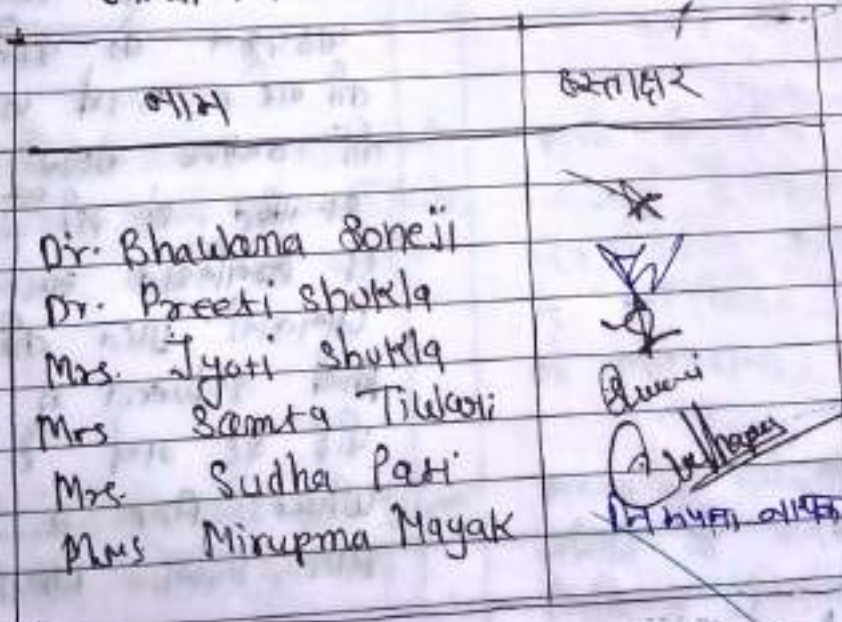 नाम हस्ताक्षर
Dr. Bhawana Soneji
Dr. Preeti Shukla
Mrs. Jyoti Shukla
Mrs Samta Tiwari
Mrs. Sudha Pati
Mrs Nirupma Nayak निरुपमा नायक